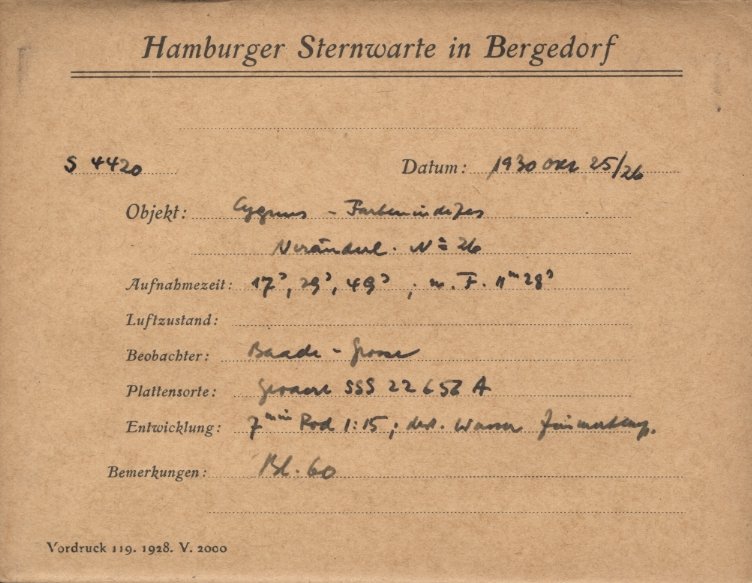 Hamburger Sternwarte in Bergedorf
S 4420 Datum: 1930 Okt 25/26
Objekt: Cygnus - Farbenindizes
Veränderl. N = 26
Aufnahmezeit: 17ˢ, 29ˢ, 49ˢ ; m. F. 11ᵐ 28ˢ
Luftzustand:
Beobachter: Baade - Grosse
Plattensorte: Gevaert SSS 22652 A
Entwicklung: 7ᵐⁱⁿ Rod 1:15; dest. Wasser Zimmertemp.
Bemerkungen: Bl. 60
Vordruck 119. 1928. V. 2000